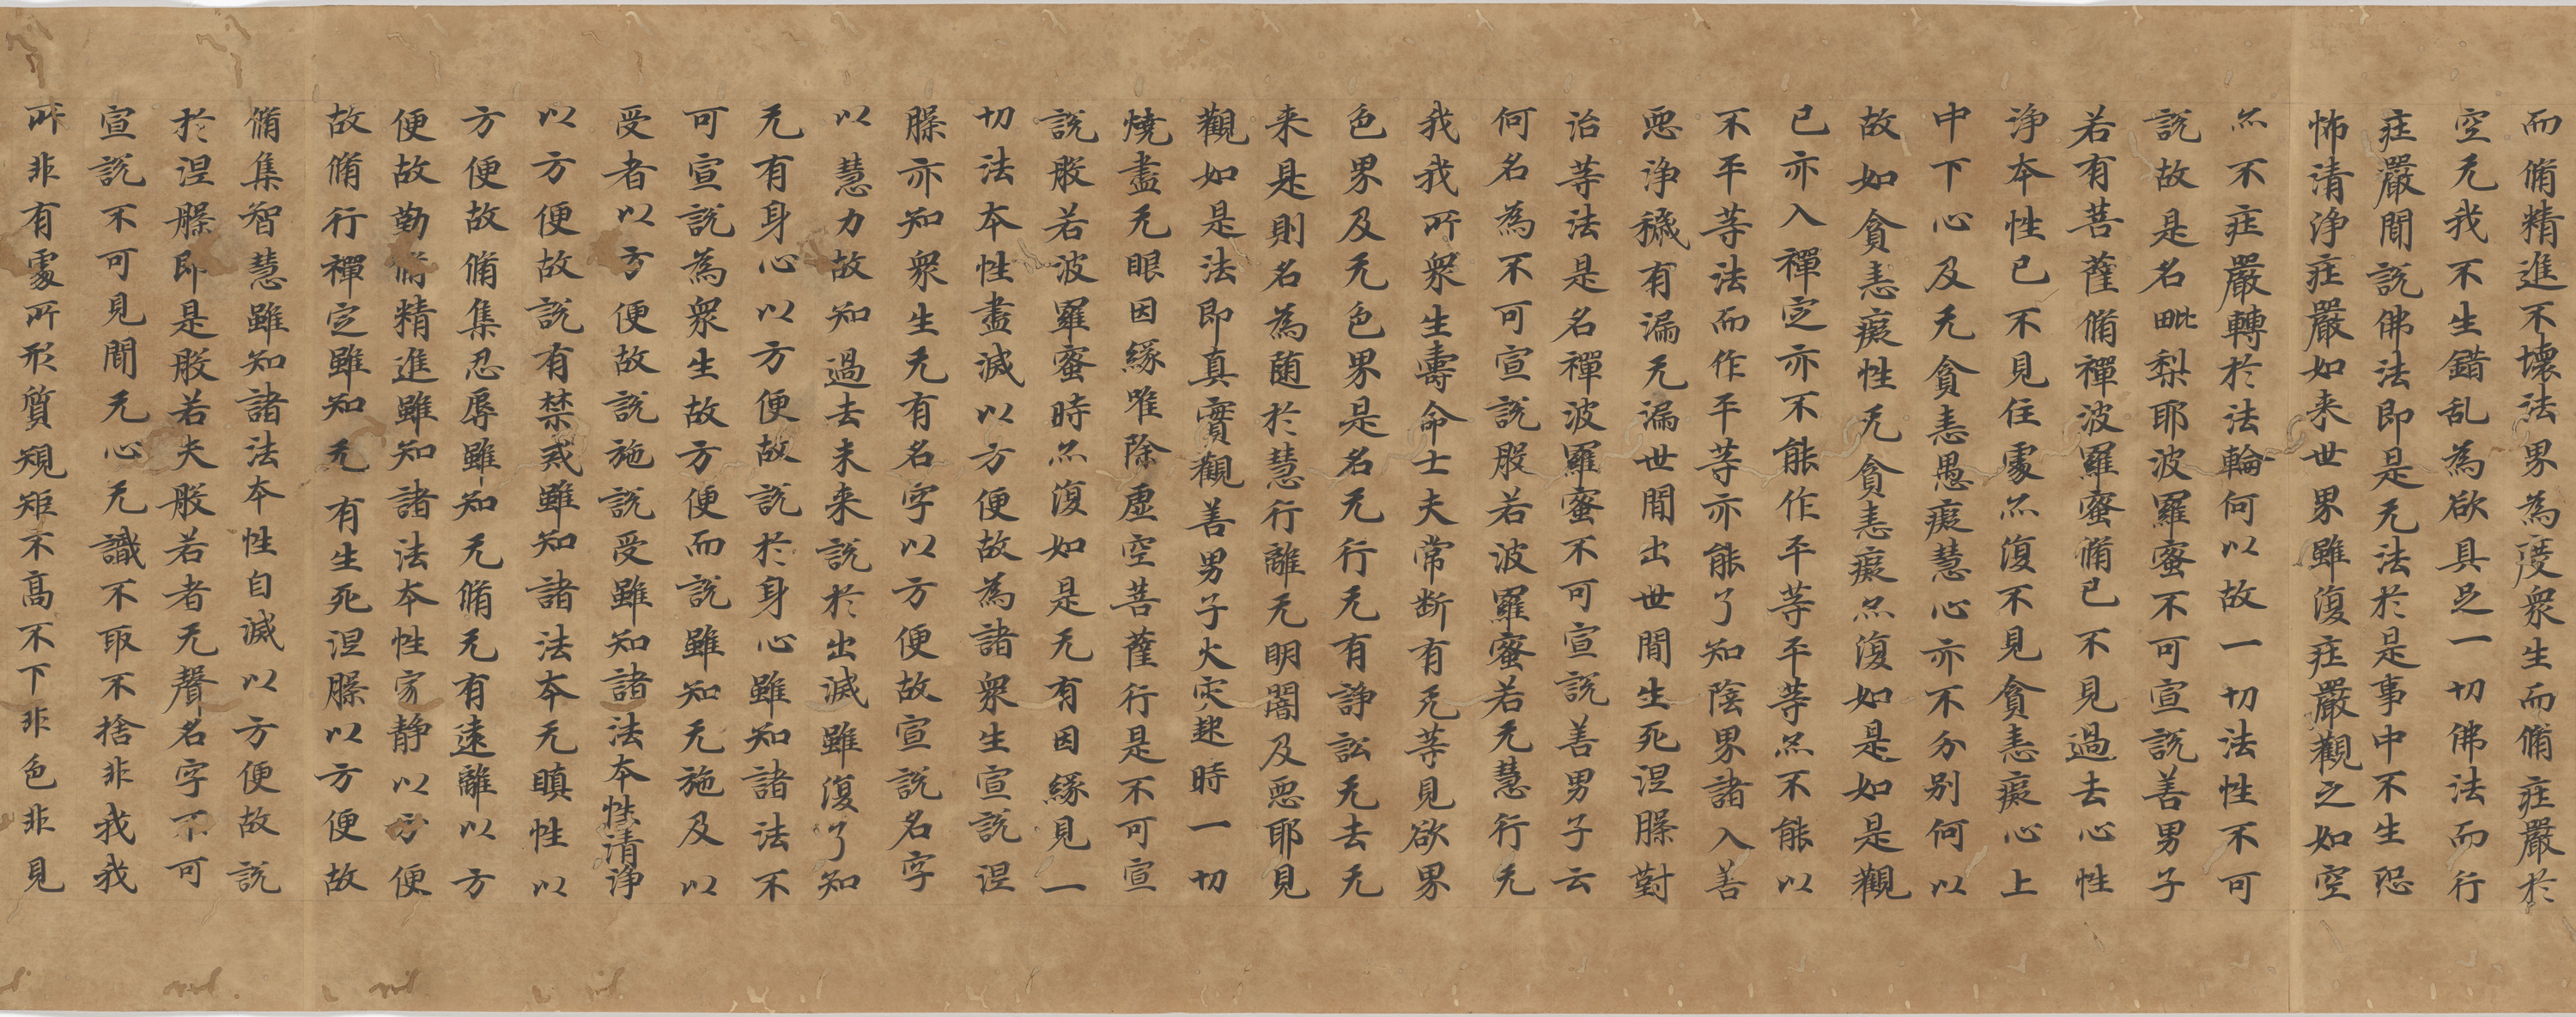 而脩精進不壞法界為度衆生而脩莊嚴於
空无我不生錯乱為欲具足一切佛法而行
莊嚴聞說佛法即是无法於是事中不生恐
怖清浄莊嚴如来世界雖復莊嚴觀之如空
亦不莊嚴轉於法輪何以故一切法性不可
說故是名毗梨耶波羅蜜不可宣說善男子
若有菩薩脩禪波羅蜜脩已不見過去心性
浄本性已不見住處亦復不見貪恚癡心上
中下心及无貪恚愚癡慧心亦不分別何以
故如貪恚癡性无貪恚癡亦復如是如是觀
已亦入禪定亦不能作平等平等亦不能以
不平等法而作平等亦能了知陰界諸入善
惡浄穢有漏无漏世間出世間生死涅槃對
治等法是名禪波羅蜜不可宣說善男子云
何名為不可宣說般若波羅蜜若无慧行无
我我所衆生壽命士夫常断有无等見欲界
色界及无色界是名无行无有諍訟无去无
来是則名為菌於慧行離无明闇及惡耶見
觀如是法即真實觀善男子火灾起時一切
燒盡无眼因緣唯除虛空菩薩行是不可宣
說般若波羅蜜時亦復如是无有因緣見一
切法本性盡滅以方便故為諸衆生宣說涅
槃亦知衆生无有名字以方便故宣說名字
以慧力故知過去未来說於出滅雖復了知
无有身心以方便故說於身心雖知諸法不
可宣說為衆生故方便而說雖知无施及以
受者以方便故說施說受雖知諸法本性清浄
以方便故說有禁戒雖知諸法本无瞋性以
方便故脩集忍辱雖知无脩无有遠離以方
便故勤脩精進雖知諸法本性寂静以方便
故脩行禪定雖知无有生死涅槃以方便故
脩集智慧雖知諸法本性自滅以方便故說
於涅槃即是般若夫般若者无聲名字不可
宣說不可見聞无心无識不取不捨非我我
所非有處所形質規矩不高不下非色非見